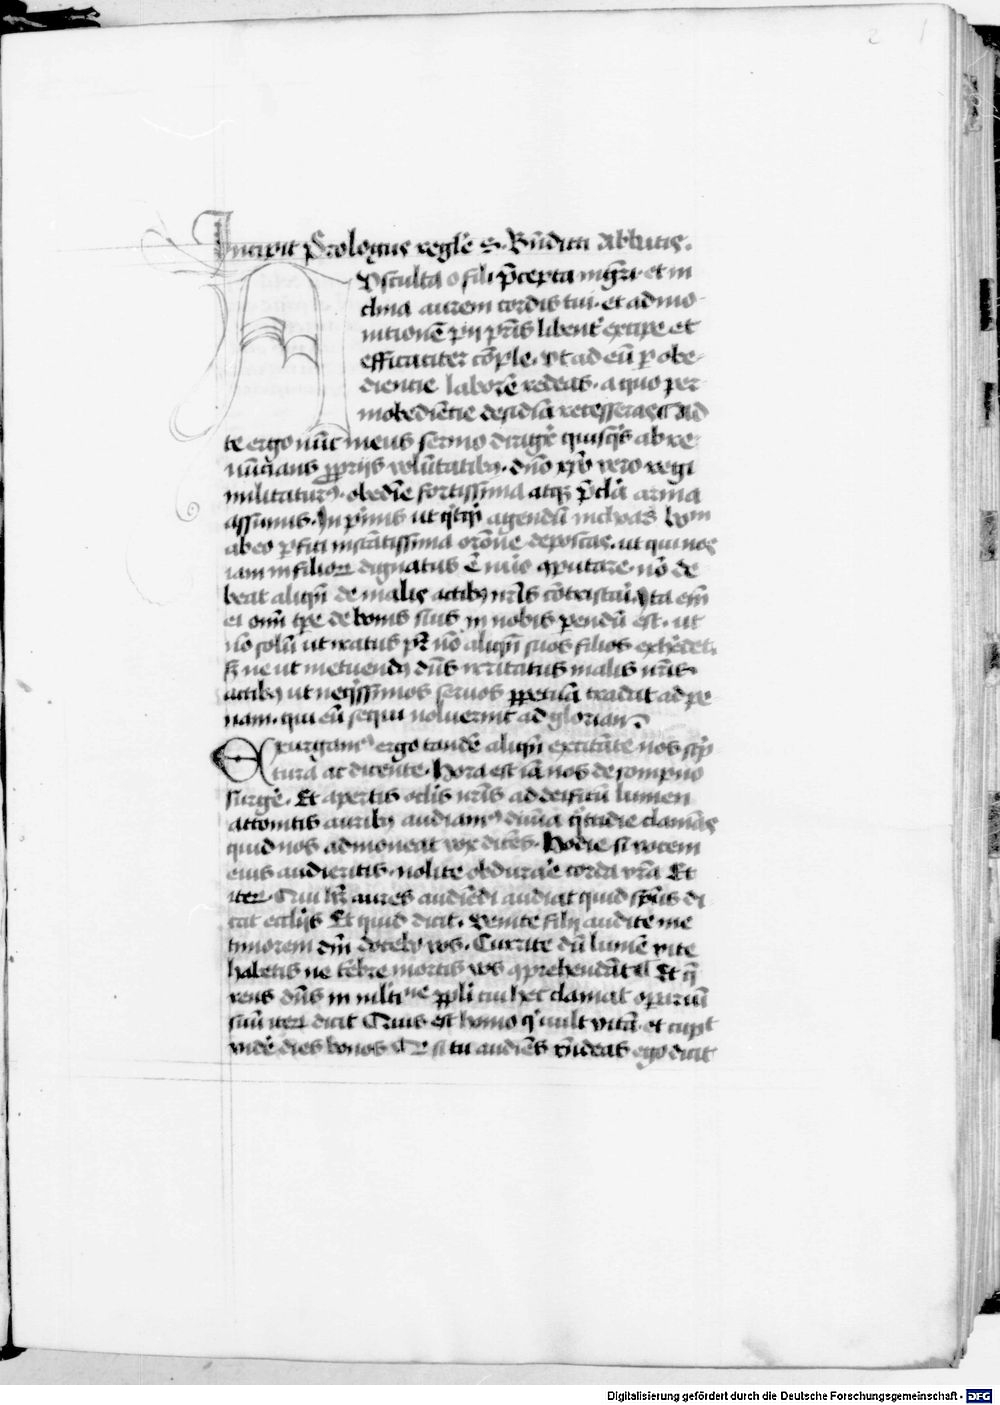 2 1
Incipit Prologus regle s. Bn̄dicti Abbatis.
Ausculta o fili p̄cepta mgr̄i · et in
clina aurem cordis tui · et admo-
nitionē pij pr̄is libent̓ excipe et
efficaciter cōple · vt ad eū p obe-
diencie laborē redeas · a quo per
inobediētie desidiā recesseras Ad
te ergo nūc meus sermo dirigit̓ quisq̓s abre-
nūcians pprijs volūtatibꝰ · dn̄o xp̄o vero regi
militaturꝰ · obediē fortissima atqꝫ p̄clā arma
assumis · In pͥmis ut qͥcqͥd agendū inchoas bonū
ab eo pfici instātissima orōne deposcas · ut qui nos
iam in filioꝝ dignatus ē nūo ꝯputare · nō de
beat aliqn̄ de malis actibꝰ nr̄is cōtristari Ita em̄
ei omī tpe de bonis suis in nobis parendū est · ut
nō solū ut iratus pr̄ nō aliqn̄ suos filios exhēdet ·
sꝫ ne ut metuendꝰ dn̄s irritatus malis nr̄is
actibꝰ ut neq̓ssimos servos ppetuā tradat ad pe
nam · qui eū sequi noluerint ad gloriam
Exurgamꝰ ergo tandē aliqn̄ excitāte nos scͥp
tura ac dicente · Hora est iā nos de sompno
surgē · Et apertis oclis nr̄is ad deificū lumen
attonitis auribꝰ audiamꝰ diuīa qͦtidie clamās
quid nos admoneat vox dicēs · Hodie si vocem
eius audieritis · nolite obdurāe corda vr̄a Et
iteꝝ · Qui hꝫ aures audiēdi audiat quid sp̄us di
cat eccl̄ijs Et quid dicit · Venite filij audite me
timorem dn̄i docebo vos · Currite dū lumē vite
habetis ne tēbre mortis vos ꝯprehendāt Et q̄
rens dn̄s in mltiᵗⁿᵉ ppli cui hec clamat operariū
suū iteꝝ dicit Quis est homo qͥ uult vitā · et cupit
videē dies bonos Qͩ si tu audiēs rn̄deas ego dicit
Digitalisierung gefördert durch die Deutsche Forschungsgemeinschaft - DFG